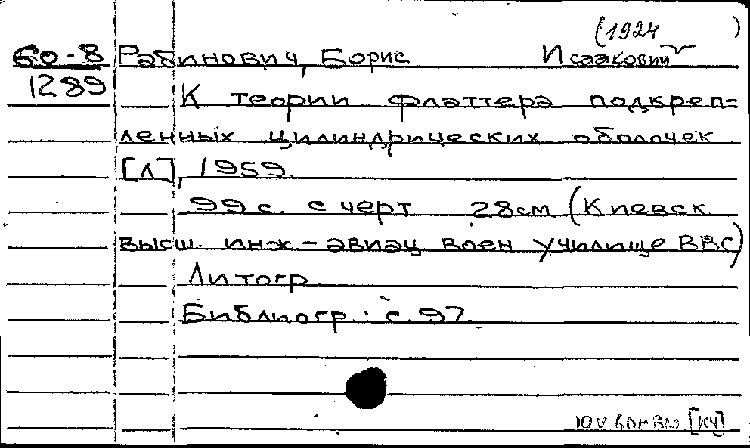 (1924 )
60-8 Рабинович, Борис Исаакович
1289
К теории флаттера подкреп-
ленных цилиндрических оболочек
[Л], 1959
99 с. с черт 28 см (Киевск
высш. инж-авиац воен училище ВВС)
Литогр
Библиогр: с. 97
[КЧ]